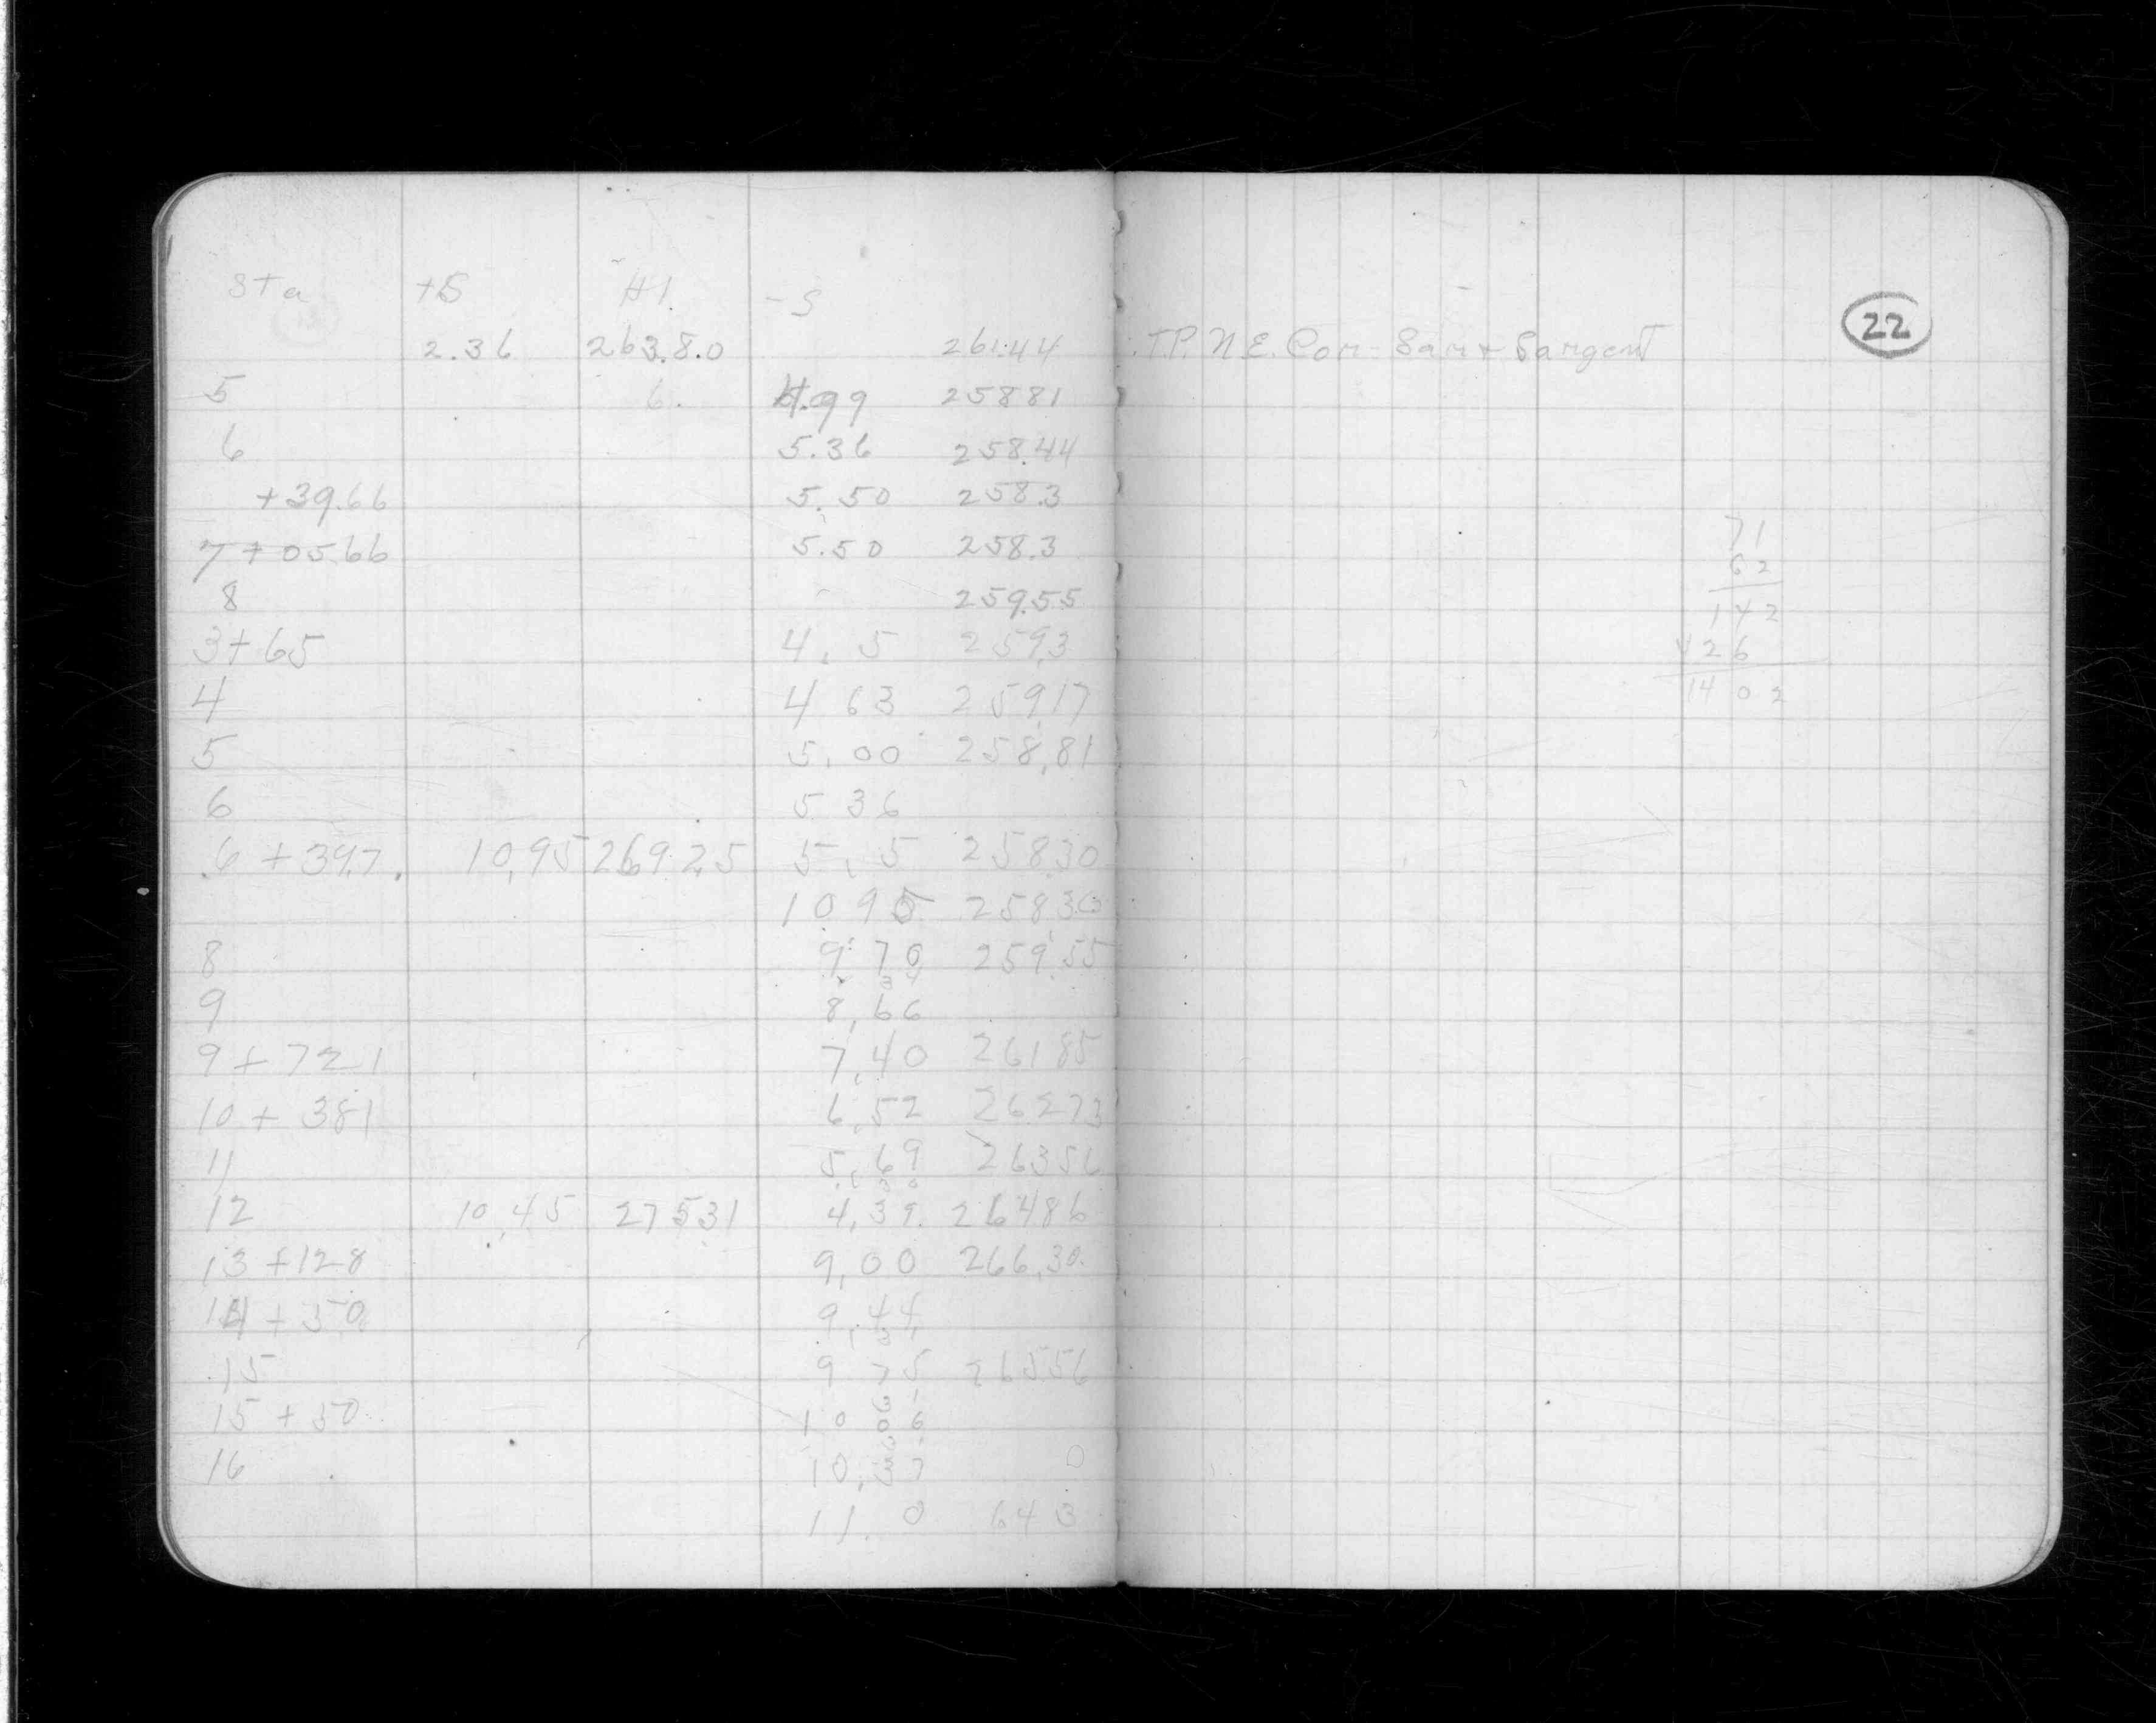 Sta +S H I. -S
2.36 263.8.0 261.44
5 6. 4.99 258 81
6 5.36 258.44
+39.66 5.50 258.3
7+05.66 5.50 258.3
8 259.55
3+65 4.5 259.3
4 4 63 259.17
5 5.00 258.81
6 5 36
6 + 39.7 10.95 269.25 5.5 258.30
10 95 258.30
8 9.70 259.55
9 8.66
9 + 72 1 7.40 261 85
10 + 38 1 6.52 262 73
11 5.69 263 56
12 10.45 275 31 4.39 264 86
13 +12 8 9.00 266.30
14 + 50 9.44
15 9 75 265 56
15 + 50 10 06
16 10.37 0
11. 0 64 3
T.P. N.E. Cor-  + Sargent
22
71
62
142
426
14 0 2